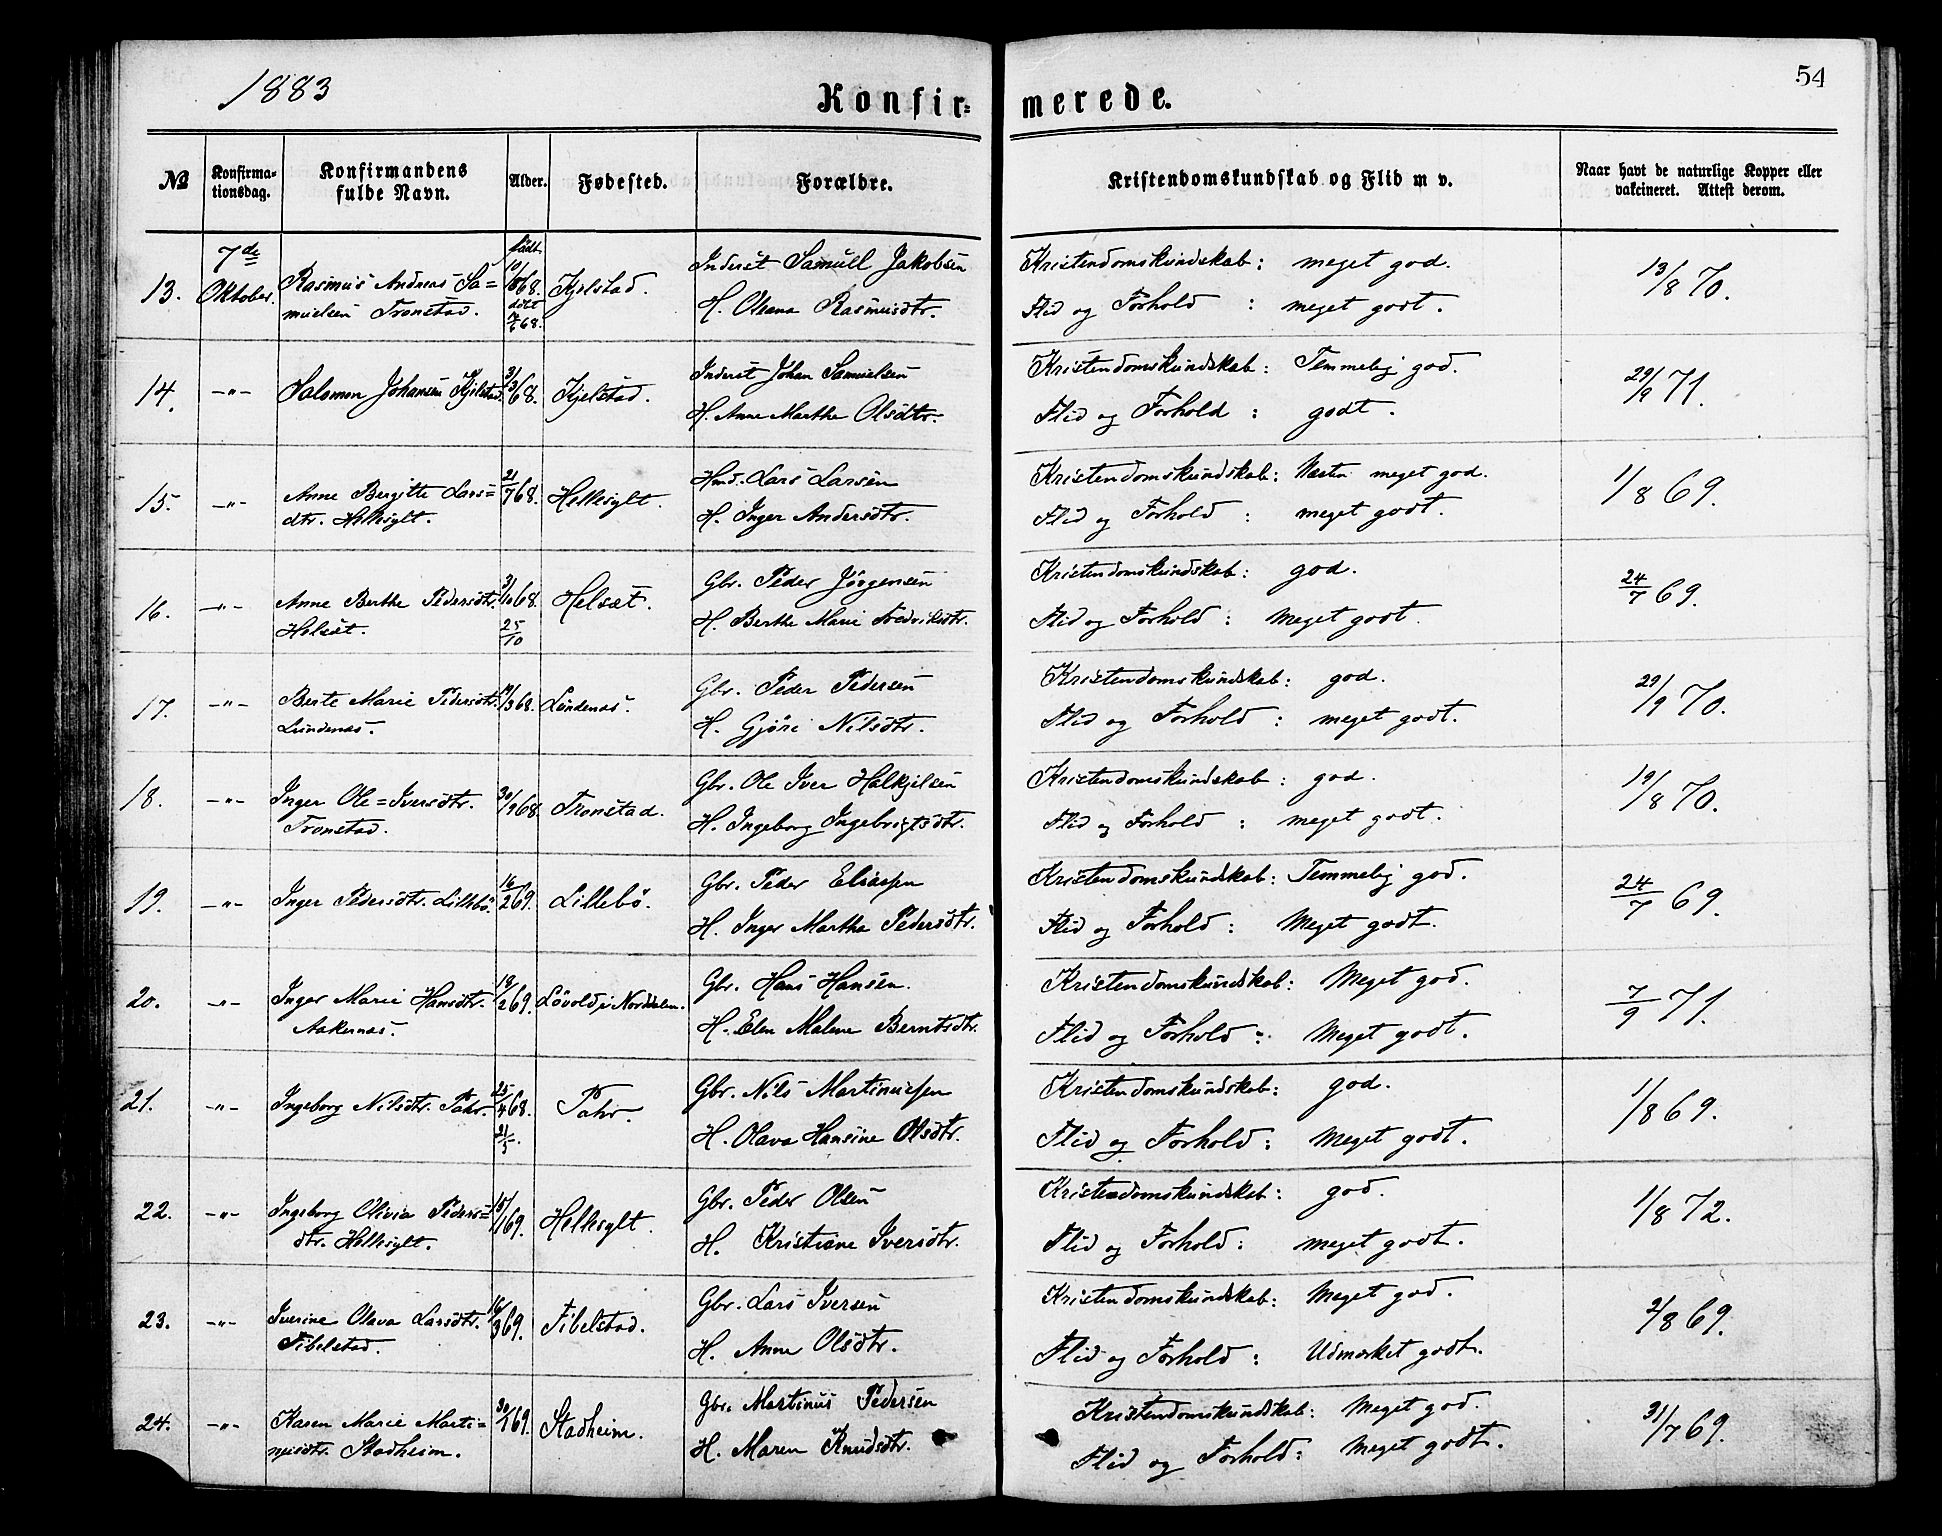 1883
54
Konfir- merede.
No Konfirmationsdag. Konfirmandens fulde Navn. Alder. Fødested. Forældre. Kristendomskundskab og Flid m v. Naar havt de naturlige Kopper eller vakcineret. Attest derom.
7de født
13. Oktober. Rasmus Andreas Sa= 68. Kjelstad. Inderst Samuel Jakobsen Kristendomskundskab: meget god. 13/8 70.
muelsen Tronstad. døbt 68. H. Oleana Rasmusdtr. Flid og Forhold : meget godt.
14. -"- Salomon Johansen Kjelstad 3/3 68. Kjelstad. Inderst Johan Samuelsen Kristendomskundskab: Temmelig god. 29/9 71.
H. Anne Marthe Olsdtr. Flid og Forhold : godt.
15. -"- Anne Bergitte Lars= 21/7 68. Hellesylt. Hmd. Lars Larsen Kristendomskundskab: Næsten meget god. 1/8 69.
dtr. Hellesylt. H. Inger Andersdtr. Flid og Forhold : meget godt.
16. -"- Anne Berthe Pedersdtr. 3/10 68. Helsæt. Gbr. Peder Jørgensen Kristendomskundskab: god. 24/7 69.
Helsæt. 25/10 H. Berthe Marie Fredriksdtr. Flid og Forhold : Meget godt.
17. -"- Berte Marie Pedersdtr. /3 68. Lundenæs. Gbr. Peder Pedersen Kristendomskundskab: god. 29/9 70.
Lundenæs. H. Gjøri Nilsdtr. Flid og Forhold : meget godt.
18. -"- Inger Ole=Iversdtr. 30/9 68. Tronstad. Gbr. Ole Iver Halkjelsen Kristendomskundskab: god. 19/8 70.
Tronstad. H. Ingeborg Ingebrigtsdtr. Flid og Forhold : meget godt.
19. -"- Inger Pedersdtr. Lillebø. 16/2 69. Lillebø. Gbr. Peder Eliassen Kristendomskundskab: Temmelig god. 24/7 69.
H. Inger Marthe Pedersdtr. Flid og Forhold : Meget godt.
20. -"- Inger Marie Hansdtr. 18/2 69. Løvold i Norddalen. Gbr. Hans Hansen. Kristendomskundskab: Meget god. 7/9 71.
Aakernæs. H. Elen Malene Berntsdtr. Flid og Forhold : Meget godt.
21. -"- Ingeborg Nilsdtr. Tahr. 25/4 68. Tahr. Gbr. Nils Martinussen Kristendomskundskab: god. 1/8 69.
21/5. H. Olava Hansine Olsdtr. Flid og Forhold : Meget godt.
22. -"- Ingeborg Olivia Peders= 15/1 69. Hellesylt. Gbr. Peder Olsen Kristendomskundskab: god. 1/8 72.
dtr. Hellesylt. H. Kristiane Iversdtr. Flid og Forhold : meget godt.
23. -"- Iverine Olava Larsdtr. 16/3 69. Fibelstad. Gbr. Lars Iversen Kristendomskundskab: Meget god. 2/8 69.
Fibelstad. H. Anne Olsdtr. Flid og Forhold : Udmærket godt.
24. -"- Karen Marie Marti= 30/1 69. Stadheim. Gbr. Martinus Pedersen Kristendomskundskab: Meget god. 31/7 69.
nusdtr. Stadheim. H. Maren Knudsdtr. Flid og Forhold : Meget godt.